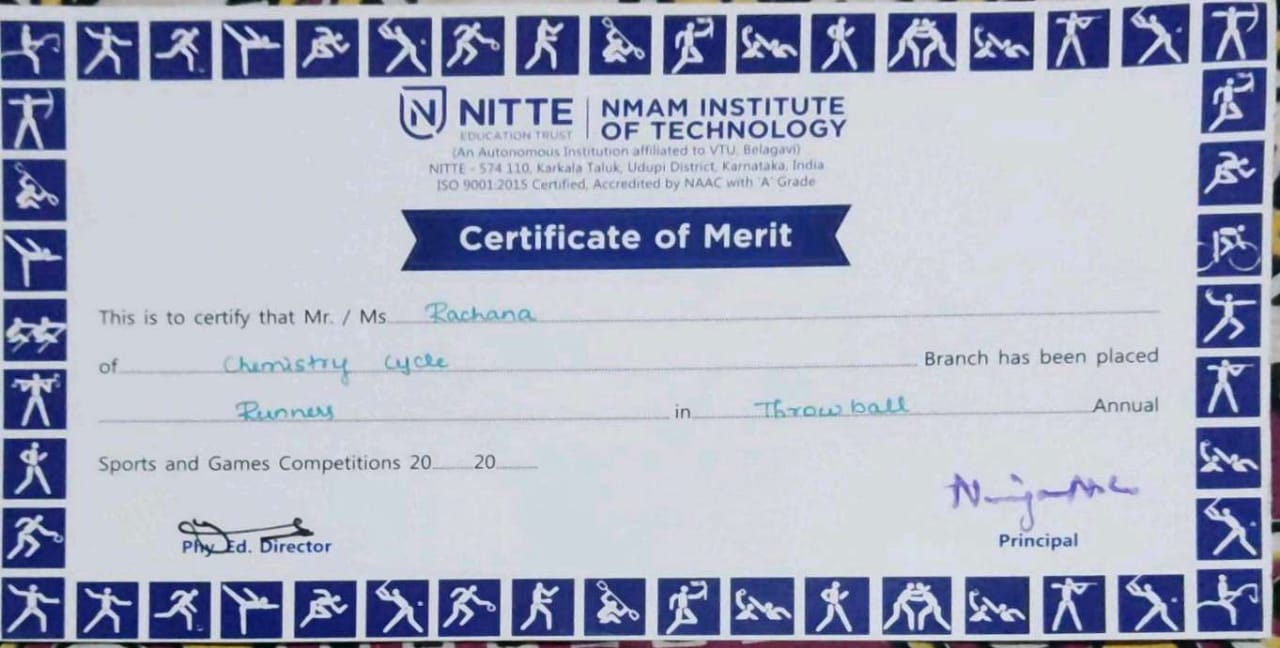 N NITTE
EDUCATION TRUST
NMAM INSTITUTE
OF TECHNOLOGY
(An Autonomous Institution affiliated to VTU, Belagavi)
NITTE - 574 110, Karkala Taluk, Udupi District, Karnataka, India
ISO 9001:2015 Certified, Accredited by NAAC with 'A' Grade
Certificate of Merit
This is to certify that Mr. / Ms. Rachana
of Chemistry Cycle Branch has been placed
Runners in Throwball Annual
Sports and Games Competitions 20 20
Phy. Ed. Director
Principal